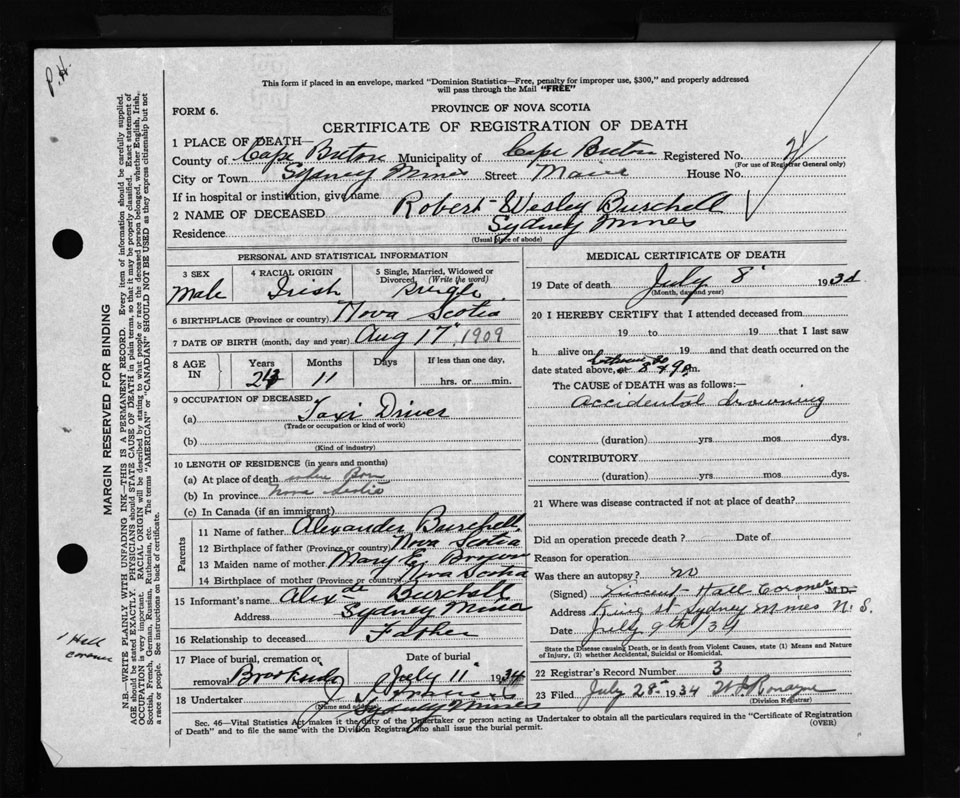 P.H.
This form if placed in an envelope, marked "Dominion Statistics—Free, penalty for improper use, $300," and properly addressed
will pass through the Mail "FREE"
FORM 6.
PROVINCE OF NOVA SCOTIA
CERTIFICATE OF REGISTRATION OF DEATH
1 PLACE OF DEATH—
County of Cape Breton Municipality of Cape Breton Registered No.
(For use of Registrar General only)
City or Town Sydney Mines Street Main House No.
If in hospital or institution, give name
2 NAME OF DECEASED Robert Wesley Burchell
Residence Sydney Mines
(Usual place of abode)
PERSONAL AND STATISTICAL INFORMATION
3 SEX 4 RACIAL ORIGIN 5 Single, Married, Widowed or
Divorced (Write the word)
Male Irish Single
6 BIRTHPLACE (Province or country) Nova Scotia
7 DATE OF BIRTH (month, day and year) Aug 17, 1909
8 AGE IN Years Months Days If less than one day,
24 11 hrs. or min.
9 OCCUPATION OF DECEASED
(a) Taxi Driver
(Trade or occupation or kind of work)
(b)
(Kind of industry)
10 LENGTH OF RESIDENCE (in years and months)
(a) At place of death where Born
(b) In province Nova Scotia
(c) In Canada (if an immigrant)
Parents
11 Name of father Alexander Burchell
12 Birthplace of father (Province or country) Nova Scotia
13 Maiden name of mother Mary E. Brown
14 Birthplace of mother (Province or country) Nova Scotia
15 Informant's name Alexde Burchell
Address Sydney Mines
16 Relationship to deceased Father
17 Place of burial, cremation or Date of burial
removal Brookside July 11 1934
18 Undertaker
(Name and address)
Sydney Mines
MEDICAL CERTIFICATE OF DEATH
19 Date of death July 8 1934
(Month, day and year)
20 I HEREBY CERTIFY that I attended deceased from
19 to 19 that I last saw
h alive on 19 and that death occurred on the
date stated above, at between 8 & 9 p.m.
The CAUSE OF DEATH was as follows:—
accidental drowning
(duration) yrs. mos. dys.
CONTRIBUTORY
(duration) yrs. mos. dys.
21 Where was disease contracted if not at place of death?
Did an operation precede death? Date of
Reason for operation
Was there an autopsy? no
(Signed) Vincent Hall Coroner M.D.
Address King St Sydney Mines N.S.
Date July 9th/34
State the Disease causing Death, or in death from Violent Causes, state (1) Means and Nature
of Injury, (2) whether Accidental, Suicidal or Homicidal.
22 Registrar's Record Number 3
23 Filed July 28 1934
(Division Registrar)
Sec. 46—Vital Statistics Act makes it the duty of the Undertaker or person acting as Undertaker to obtain all the particulars required in the "Certificate of Registration
of Death" and to file the same with the Division Registrar who shall issue the burial permit. (OVER)
MARGIN RESERVED FOR BINDING
N.B.—WRITE PLAINLY WITH UNFADING INK—THIS IS A PERMANENT RECORD. Every item of information should be carefully supplied.
AGE should be stated EXACTLY. PHYSICIANS should STATE CAUSE OF DEATH in plain terms, so that it may be properly classified. Exact statement of
OCCUPATION is very important. RACIAL ORIGIN will be described by stating to what people or race the deceased person belonged, whether English, Irish,
Scottish, French, German, Russian, Ruthenian, etc. The terms "AMERICAN" or "CANADIAN" SHOULD NOT BE USED as they express citizenship but not
a race or people. See instructions on back of certificate.
Hall
coroner